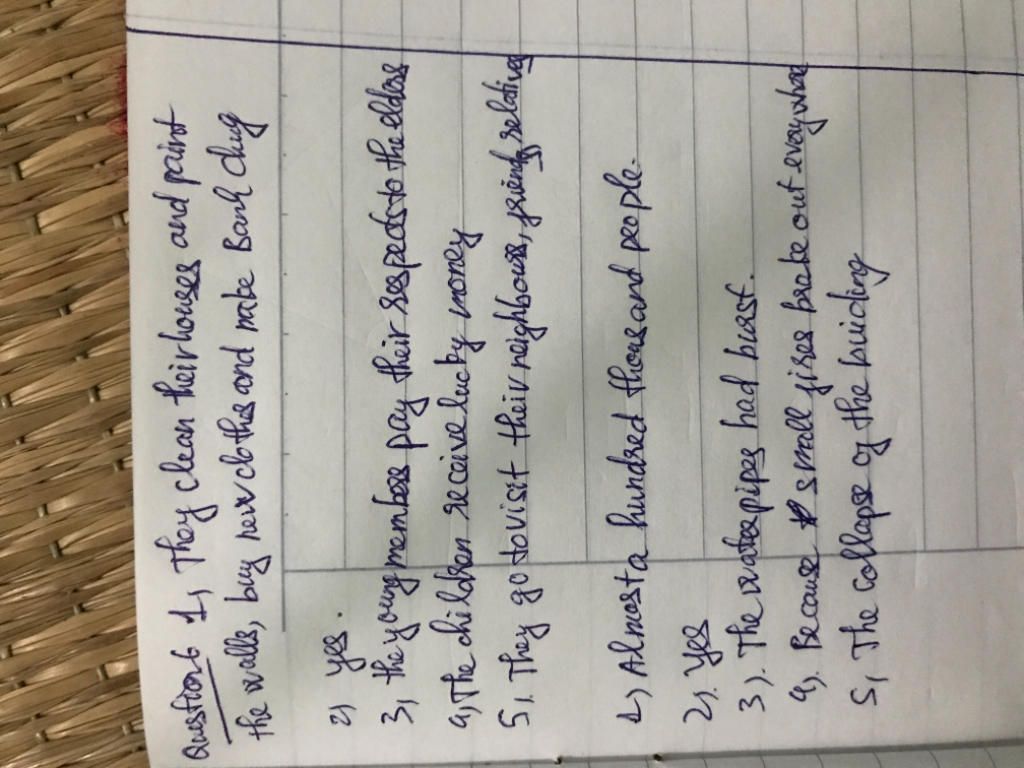 Question 6 1, They clean their houses and paint
the walls, buy new clothes and make Banh chug
2) yes.
3, the young members pay their respects to the elders
4, The children receive lucky money
5). They go to visit their neighbours, friends, relatives
1) Almost a hundred thousand people.
2). Yes
3). The water pipes had burst.
4). Because small fires broke out everywhere
5, The collapse of the buiding